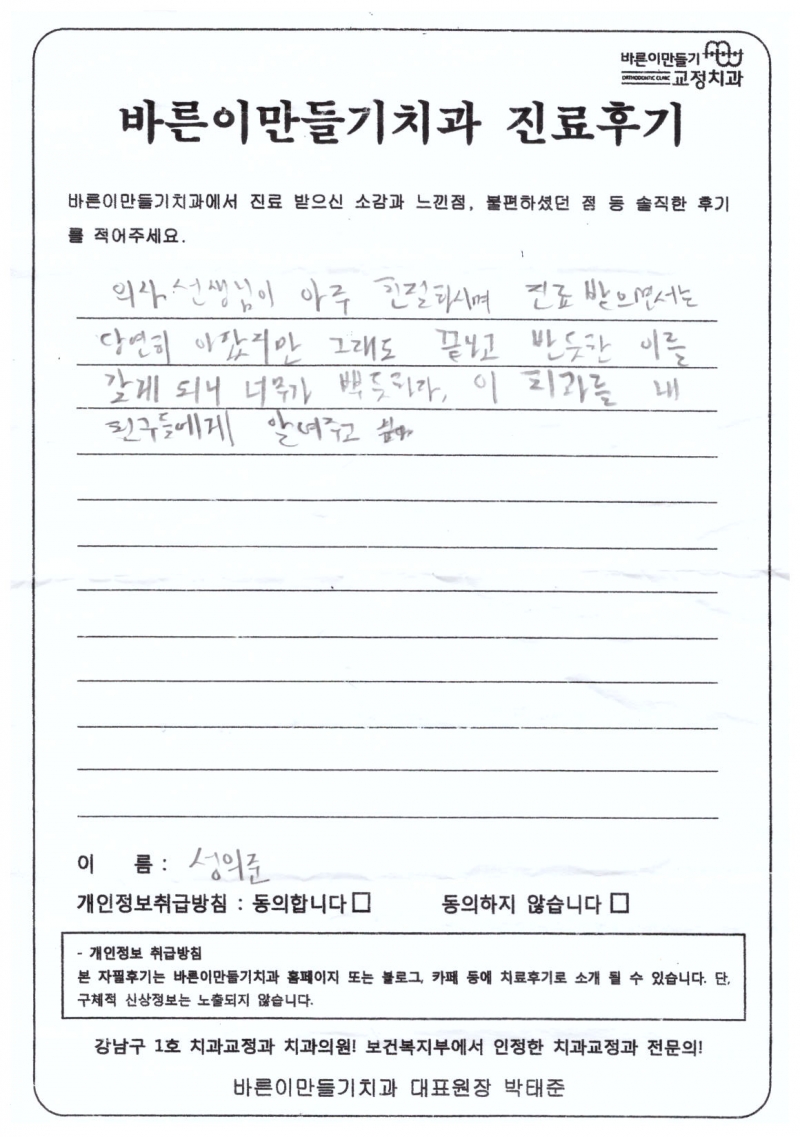 바른이만들기
ORTHODONTIC CLINIC 교정치과
바른이만들기치과 진료후기
바른이만들기치과에서 진료 받으신 소감과 느낀점, 불편하셨던 점 등 솔직한 후기
를 적어주세요.
의사 선생님이 아주 친절하시며 진료 받으면서는
당연히 아팠지만 그래도 끝나고 반듯한 이를
갖게 되니 너무가 뿌듯하다, 이 치과를 내
친구들에게 알려주고
이 름 : 성의준
개인정보취급방침 : 동의합니다 □ 동의하지 않습니다 □
- 개인정보 취급방침
본 자필후기는 바른이만들기치과 홈페이지 또는 블로그, 카페 등에 치료후기로 소개 될 수 있습니다. 단,
구체적 신상정보는 노출되지 않습니다.
강남구 1호 치과교정과 치과의원! 보건복지부에서 인정한 치과교정과 전문의!
바른이만들기치과 대표원장 박태준